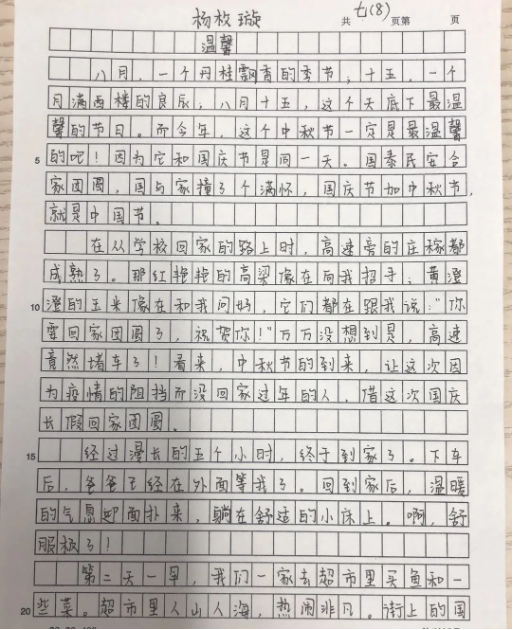 杨枚璇 共 七(8) 页第 页
温馨
八月，一个丹桂飘香的季节；十五，一个
月满西楼的良辰；八月十五，这个天底下最温
馨的节日。而今年，这个中秋节一定是最温馨
5 的吧！因为它和国庆节是同一天。国泰民安合
家团圆，国与家撞了个满怀，国庆节加中秋节，
就是中国节。
在从学校回家的路上时，高速旁的庄稼都
成熟了。那红艳艳的高粱像在向我招手；黄澄
10 澄的玉米像在和我问好，它们都在跟我说："你
要回家团圆了，祝贺你！"万万没想到是，高速
竟然堵车了！看来，中秋节的到来，让这次因
为疫情的阻挡而没回家过年的人，借这次国庆
长假回家团圆。
15 经过漫长的五个小时，终于到家了。下车
后，爸爸已经在外面等我了。回到家后，温暖
的气息迎面扑来，躺在舒适的小床上。啊，舒
服极了！
第二天一早，我们一家去超市里买鱼和一
20 些菜。超市里人山人海，热闹非凡。街上的国